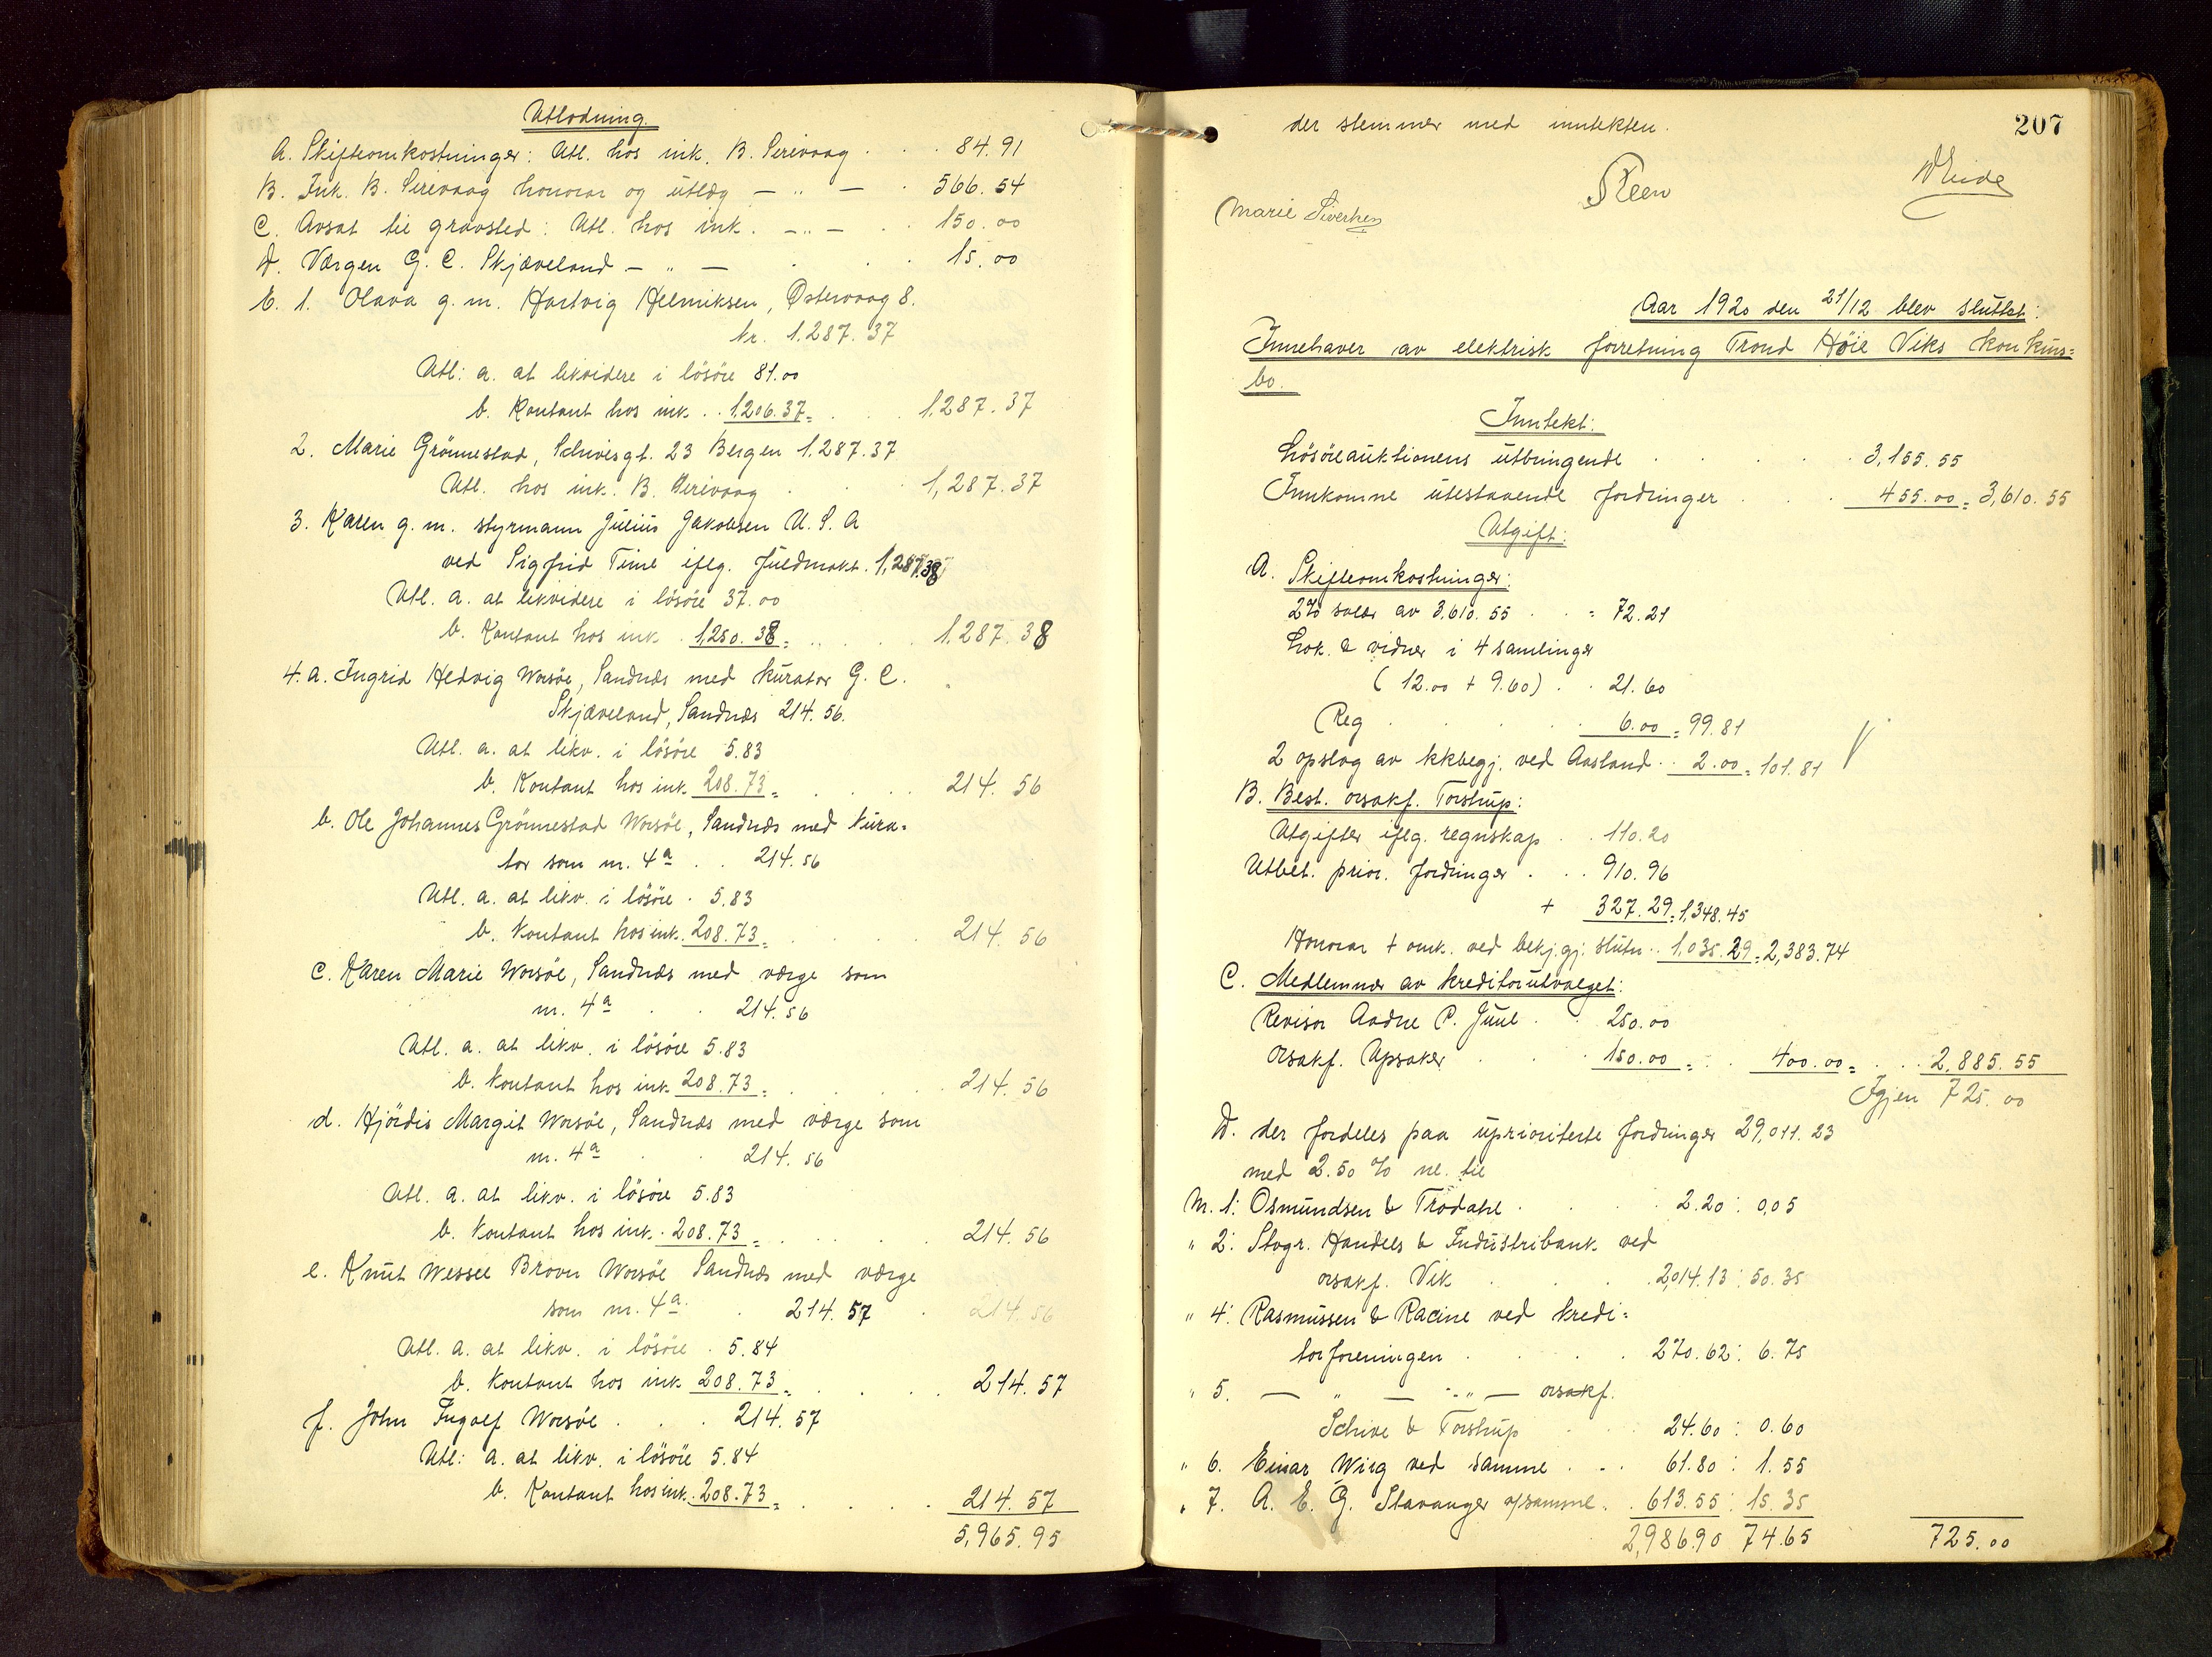 Utlodning.
A. Skifteomkostninger: Utl. hos ink. B. Sirevaag . . 84.91
B. Ink. B. Sirevaag honorar og utlæg — " — . 566.54
C. Avsat til gravsted: Utl. hos ink. — " — . . 150.00
D. Værgen G. C. Skjæveland — " — . . . 15.00
E. 1. Olava g. m. Hartvig Helmiksen, Østervaag 8.
kr. 1.287.37
Utl: a. at likvidere i lösöre 81.00
b. Kontant hos ink. . 1206.37 = . . 1,287.37
2. Marie Grönnestad, Schivesgt. 23 Bergen 1.287.37
Utl. hos ink. B. Sirevaag . . . 1,287.37
3. Karen g. m. styrmann Julius Jakobsen U. S. A
ved Sigfrid Time iflg. fuldmakt. 1,287.38
Utl. a. at likvidere i lösöre 37.00
b. Kontant hos ink . 1,250.38 = . . . 1.287.38
4. a. Ingrid Hedvig Worsöe, Sandnæs med kurator G. C.
Skjæveland, Sandnæs 214.56.
Utl. a. at likv. i lösöre 5.83
b. Kontant hos ink. 208.73 = . . . 214.56
b. Ole Johannes Grönnestad Worsöe, Sandnæs med kura=
tor som nr. 4a . . 214.56
Utl. a. at likv. i lösöre . 5.83
b. Kontant hos ink. 208.73 = . . . 214.56
c. Karen Marie Worsöe, Sandnæs med værge som
nr. 4a . . 214.56
Utl. a. at likv. i lösöre 5.83
b. Kontant hos ink. 208.73 = . . . 214.56
d. Hjördis Margit Worsöe, Sandnæs med værge som
nr. 4a . . 214.56
Utl. a. at likv. i lösöre 5.83
b. Kontant hos ink. . 208.73 = . . . 214.56
e. Knut Wessel Brown Worsöe Sandnæs med værge
som nr. 4a . 214.57 . 214.56
Utl. a. at likv. i lösöre . 5.84
b. Kontant hos ink 208.73 = . . . 214.57
f. John Ingolf Worsöe . . . 214.57
Utl: a. at likv. i lösöre 5.84
b. Kontant hos ink. 208.73 = . . . 214.57
5,965.95
207
der stemmer med inntekten.
Steen
Marie Siverhen
Aar 1920 den 21/12 blev sluttet:
Innehaver av elektrisk forretning Trond Höie Viks konkurs=
bo.
Inntekt:
Lösöreauktionens utbringende . . . . 3,155.55
Innkomne utestaaende fordringer . . . 455.00 = 3,610.55
Utgift:
A. Skifteomkostninger:
2% salær av 3,610.55 . . = 72.21
Lok. & vidner i 4 samlinger
(12.00 + 9.60) . . 21.60
Reg . . . . 6.00 = 99.81
2 opslag av kkbegj. ved Aasland . . 2.00 = 101.81 V
B. Best. orsakf. Torstrup:
Utgifter iflg. regnskap . . 110.20
Utbet. prior. fordringer . . . 910.96
+ 327.29 = 1,348.45
Honorar + omk. ved bekj.gj. slutn . . 1,035.29 = 2,383.74
C. Medlemmer av kreditorutvalget:
Revisor Aadne P. Juul . . 250.00
Orsakf. Upsaker . . . 150.00 = . . 400.00 = . . 2,885.55
Igjen 725.00
D. der fordeles paa uprioriterte fordringer 29,011.23
med 2.50 % nl. til
Nr. 1: Osmundsen & Trodahl . . . . 2.20 : 0,05
" 2: Stvgr. Handels & Industribank ved
orsakf. Vik . . . . 2,014.13 : 50.35
" 4: Rasmussen & Racine ved kredi=
torforeningen . . . . 270.62 : 6.75
" 5. — " — - " — orsakf.
Schive & Torstrup . . . 24.60 : 0.60
" 6. Einar Wiig ved samme . . . 61.80 : 1.55
" 7. A. E. G. Stavanger v/samme . . 613.55 : 15.35
2,986.90 74.65 725.00